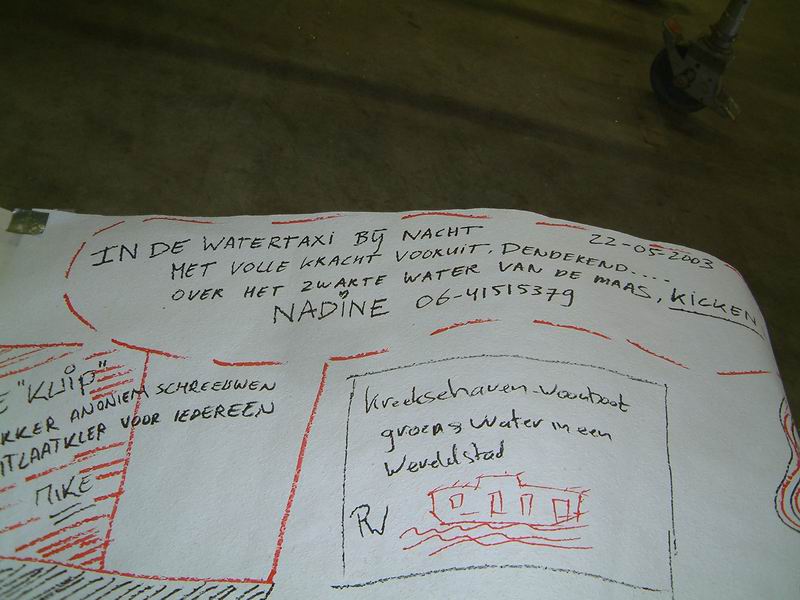 IN DE WATERTAXI BIJ NACHT
22-05-2003
MET VOLLE KRACHT VOORUIT, DENDEREND....
OVER HET ZWARTE WATER VAN DE MAAS, KICKEN
NADINE 06-41515379
E "KLIP"
KKER ANONIEM SCHREEUWEN
ITLAATKLEP VOOR IEDEREEN
MIKE
Kreekschaven-woonboot
groens Water in een
Wereldstad
RW